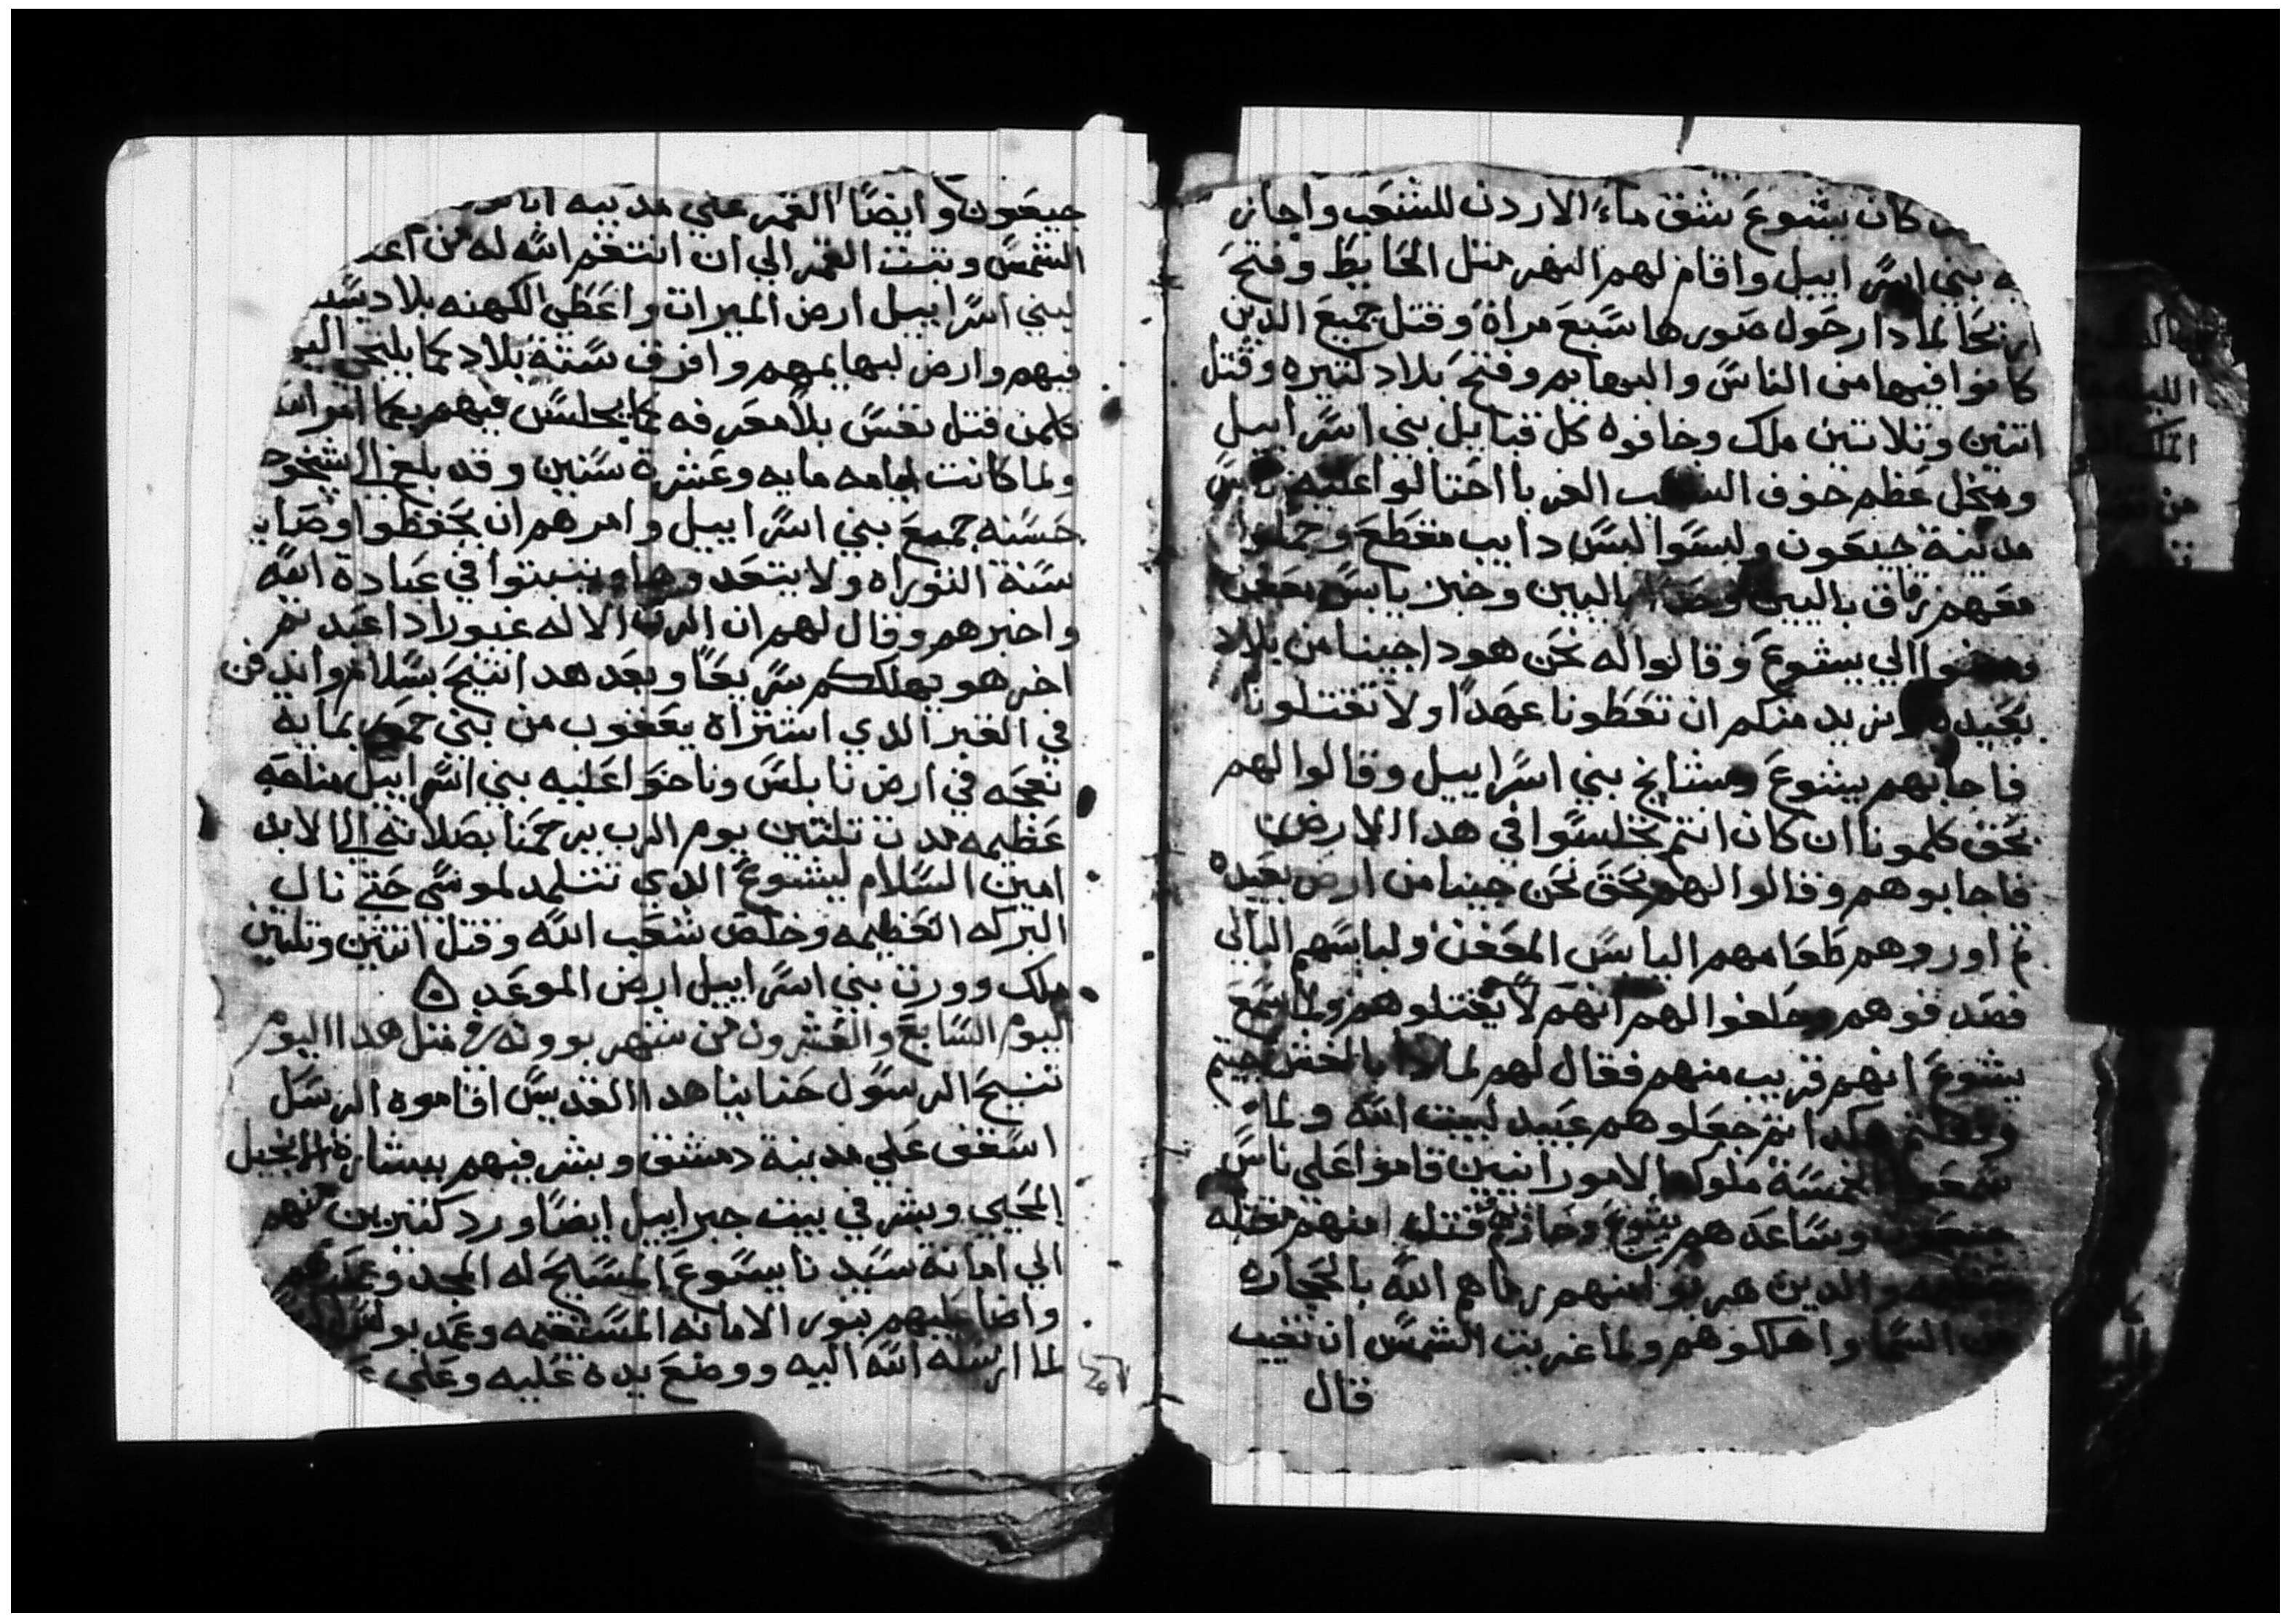 كان يشوع شق ماء الاردن للشعب واجاز
به بني اسراييل واقام لهم النهر متل الحايط وفتح
اريحا لما دار حول صورها سبع مراة وقتل جميع الدين
كانوا فيها من الناس والبهايم وفتح بلاد كتيره وقتل
اتنين وتلاتين ملك وخافوه كل قبايل بني اسراييل
عظم خوف الغربا احتالوا عليه ناس
مدينة جبعون ولبسوا لبس دايب مقطع وحملوا
معهم زقاق باليين باليين وخبز يابس معفن
ومضوا الي يشوع وقالوا له نحن هودا جينا من بلاد
بعيده ونريد منكم ان تعطونا عهدا ولا تقتلونا
فاجابهم يشوع ومشايخ بني اسراييل وقالوا لهم
بحق كلمونا ان كان انتم تجلسوا في هدا الارض
فاجابوهم وقالوا لهم بحق نحن جينا من ارض بعيده
تم اوروهم طعامهم اليابس المعفن ولباسهم البالي
فصدقوهم وحلفوا لهم انهم لا يقتلوهم ولما سمع
يشوع انهم قريب منهم فقال لهم لما دا بالغش جيتم
وفعلتم هكدا تم جعلوهم عبيد لبيت الله ولما
سمعوا الخمسة ملوك الامورانيين قاموا على ناس
جبعون وساعدهم يشوع وحاربه وقتل منهم مقتله
عظيمه والدين هربو منهم رماهم الله بالحجاره
من السما واهلكوهم ولما غربت الشمس ان تغيب
قال
جبعون وايضا القمر علي مدينه
الشمس وتبت القمر الي ان انتقم الله له من
لبني اسراييل ارض الميرات واعطي الكهنه بلاد
فيهم وارض لبهايمهم وافرق ستة بلاد لما يلتجي
كلمن قتل نفس بلا معرفه لما يجلس فيهم
ولما كانت ايامه مايه وعشرة سنين وقد بلغ الي
حسنه جميع بني اسراييل وامرهم ان يحفظوا وصايا
سنة التوراه ولا يتعدوها ويتبتوا في عبادة الله
واخبرهم وقال لهم ان الرب الاله غيور ادا عبدتم
اخر هو يهلككم سريعا وبعد هدا اتنيح بسلام واندفن
في القبر الدي اشتراه يعقوب من بني حمور بمايه
نعجه في ارض نابلس وناحوا عليه بني اسراييل مناحه
عظيمه مدت تلتين يوم الرب يرحمنا بصلاته الي الابد
امين السلام ليشوع الدي تتلمد لموسي حتي نال
البركه العظيمه وخلص شعب الله وقتل اتنين وتلتين
ملك وورت بني اسراييل ارض الموعد
اليوم السابع والعشرون من شهر بوونه في متل هدا اليوم
تنيح الرسول حنانيا هدا القديس اقاموه الرسل
اسقف علي مدينة دمشق وبشر فيهم ببشارة الانجيل
المحيي وبشر في بيت جبراييل ايضا ورد كتيرين منهم
الي امانة سيدنا يسوع المسيح له المجد وعمدهم
واضا عليهم بنور الامانه المستقيمه وعمد بولس
لما ارسله الله اليه ووضع يده عليه وعلي